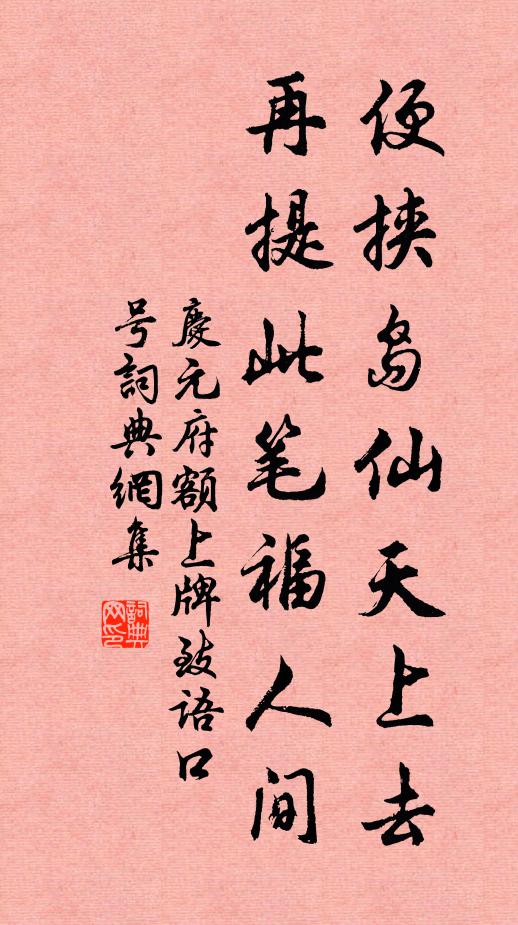 便挟岛仙天上去
再提此笔福人间
慶元府額上牌致語口
号詞典網集
詞典網印